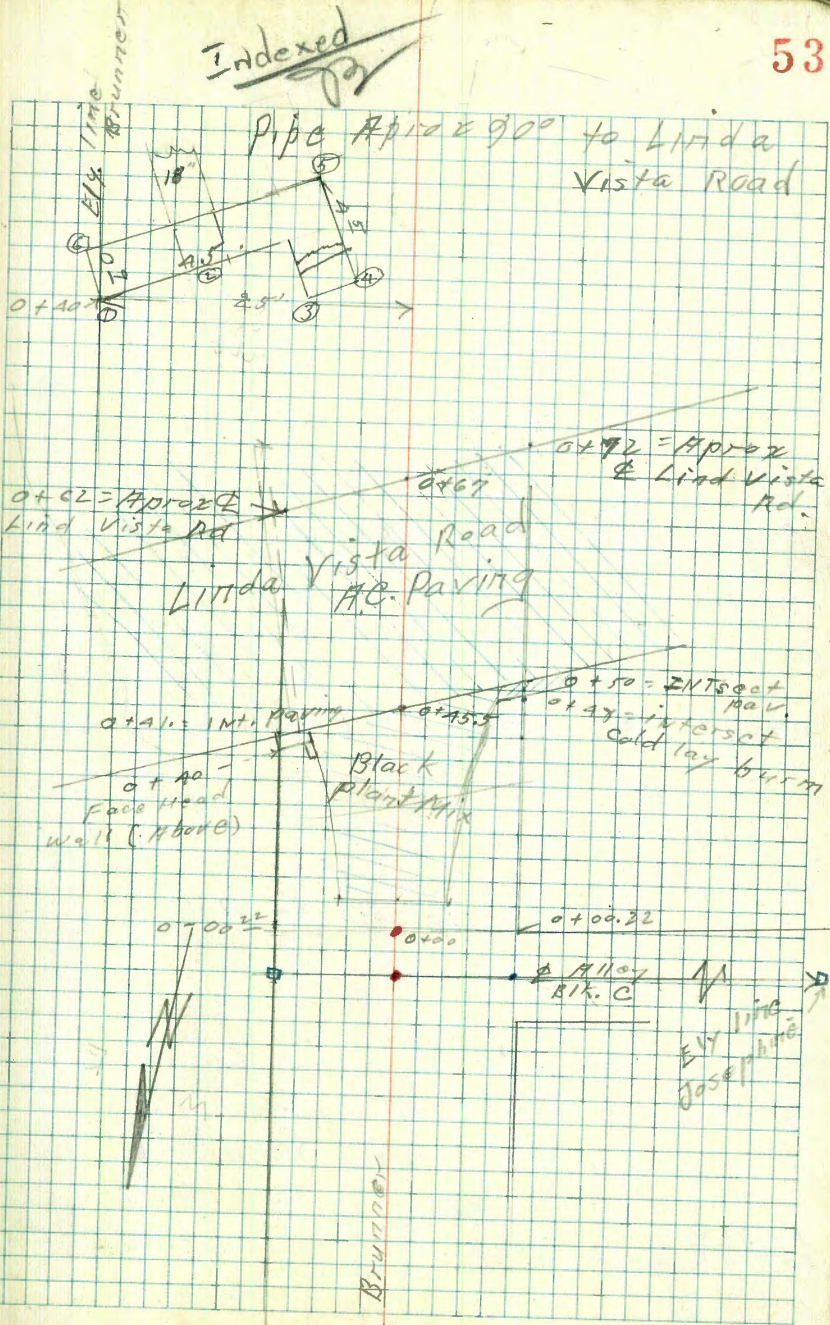 Indexed
53
Ely. line
Brunner
Pipe Aprox 90° to Linda
Vista Road
18"
⑤
⑥
4.5
②
④
③
2.5'
0+40
0+72 = Aprox
℄ Lind Vista
Rd.
0+67
0+62 = Aprox ℄
Lind Vista Rd
Linda Vista Road
A.C. Paving
0+50 = INTsect
pav.
0+48 = intersect
Cold lay burm
0+45.5
0+41. = Int. paving
0+40
Face Head
Wall (Above)
Black
plant Mix
0-00 22
0+00.22
0+00
℄ Alley
Blk. C
Ely line
Josephine
Brunner